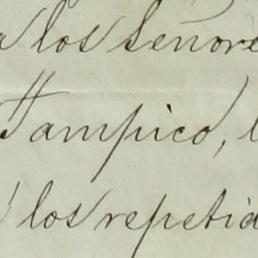 a los Señore
Tampico, l
los repetid